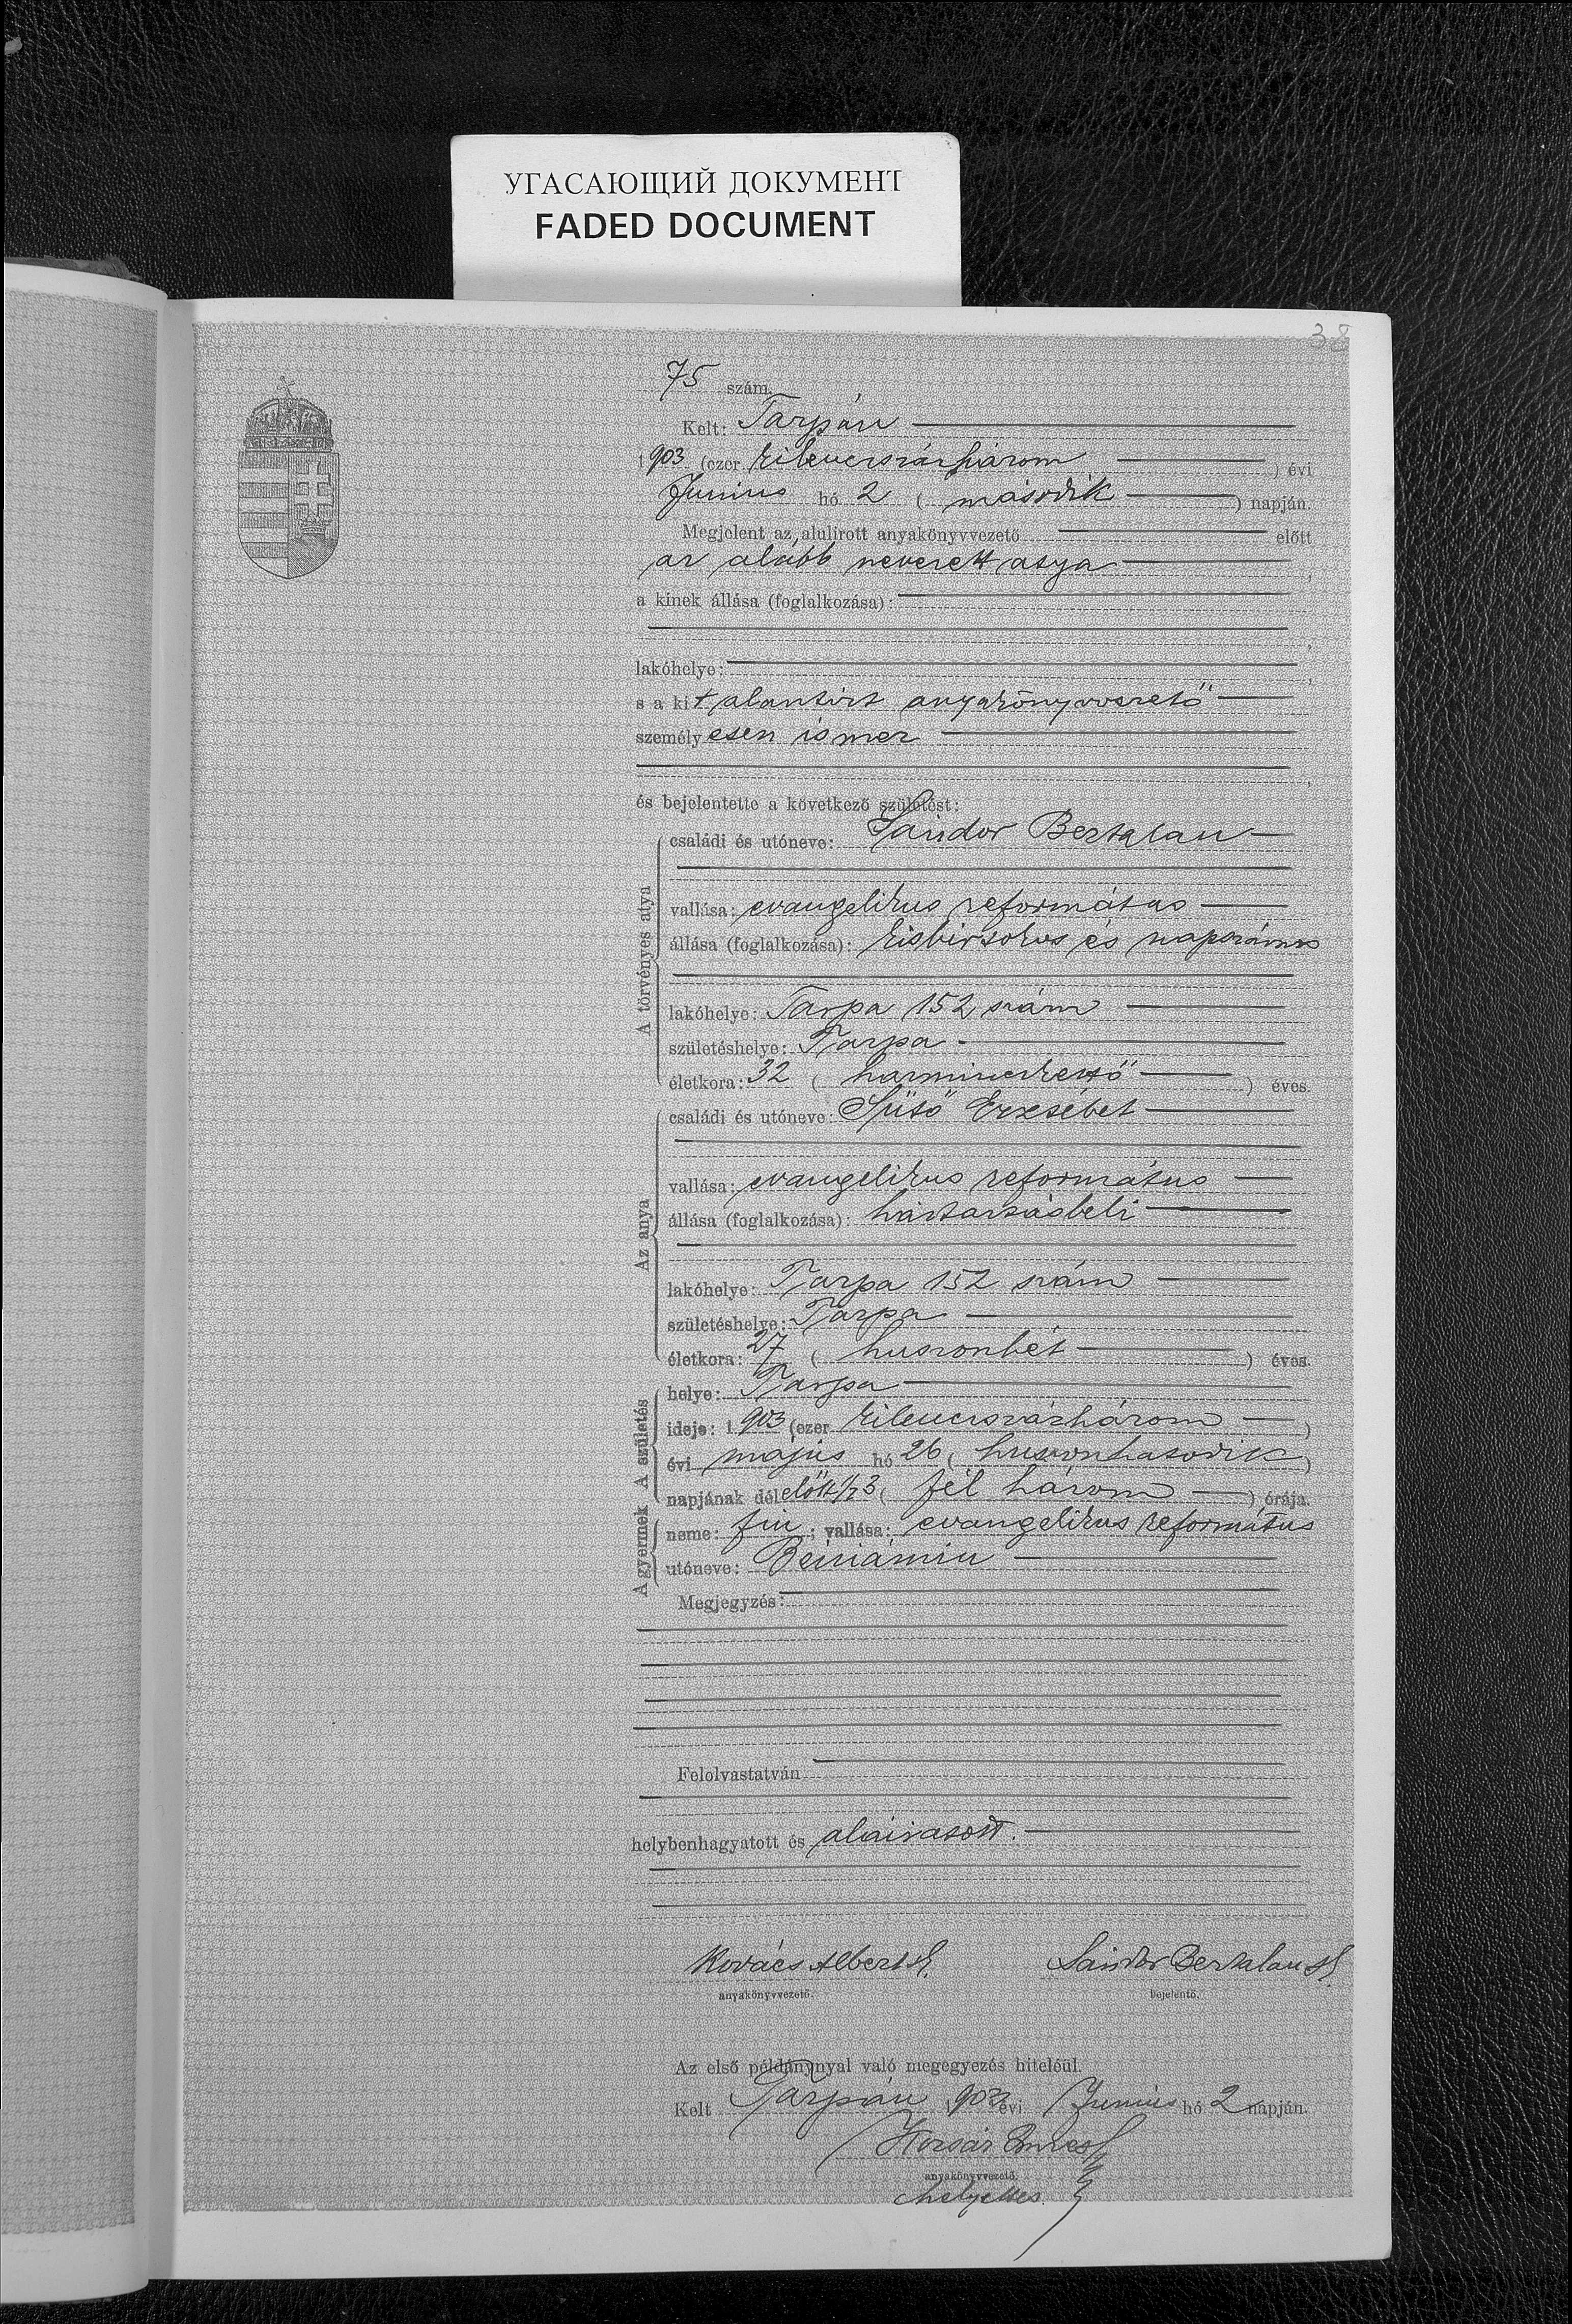 УГАСАЮЩИЙ ДОКУМЕНТ
FADED DOCUMENT
38
75 szám.
Kelt: Tarpán
1903 (ezer kilencszázhárom) évi
Junius hó 2 (második) napján.
Megjelent az alulirott anyakönyvvezető előtt
az alább nevezett atya,
a kinek állása (foglalkozása):
lakóhelye:
s a kit alantirt anyakönyvvezető
személyesen ismer
és bejelentette a következő születést:
A törvényes atya
családi és utóneve: Sándor Bertalan
vallása: evangelikus református
állása (foglalkozása): kisbirtokos és napszámos
lakóhelye: Tarpa 152 szám
születéshelye: Tarpa
életkora: 32 (harminczkettő) éves.
Az anya
családi és utóneve: Sütő Erzsébet
vallása: evangelikus református
állása (foglalkozása): háztartásbeli
lakóhelye: Tarpa 152 szám
születéshelye: Tarpa
életkora: 27 (huszonhét) éves.
A születés
helye: Tarpa
ideje: 1903 (ezer kilencszázhárom)
évi május hó 26 (huszonhatodik)
napjának délelőtt 1/2 3 (fél három) órája.
A gyermek
neme: fiu; vallása: evangelikus református
utóneve: Beniámin
Megjegyzés:
Felolvastatván
helybenhagyatott és aláiratott.
Kovács Albert sk. Sándor Bertalan sk.
anyakönyvvezető. bejelentő.
Az első példánynyal való megegyezés hiteléül.
Kelt Tarpán 1903 évi Junius hó 2 napján.
Imre
anyakönyvvezető.
helyettes.